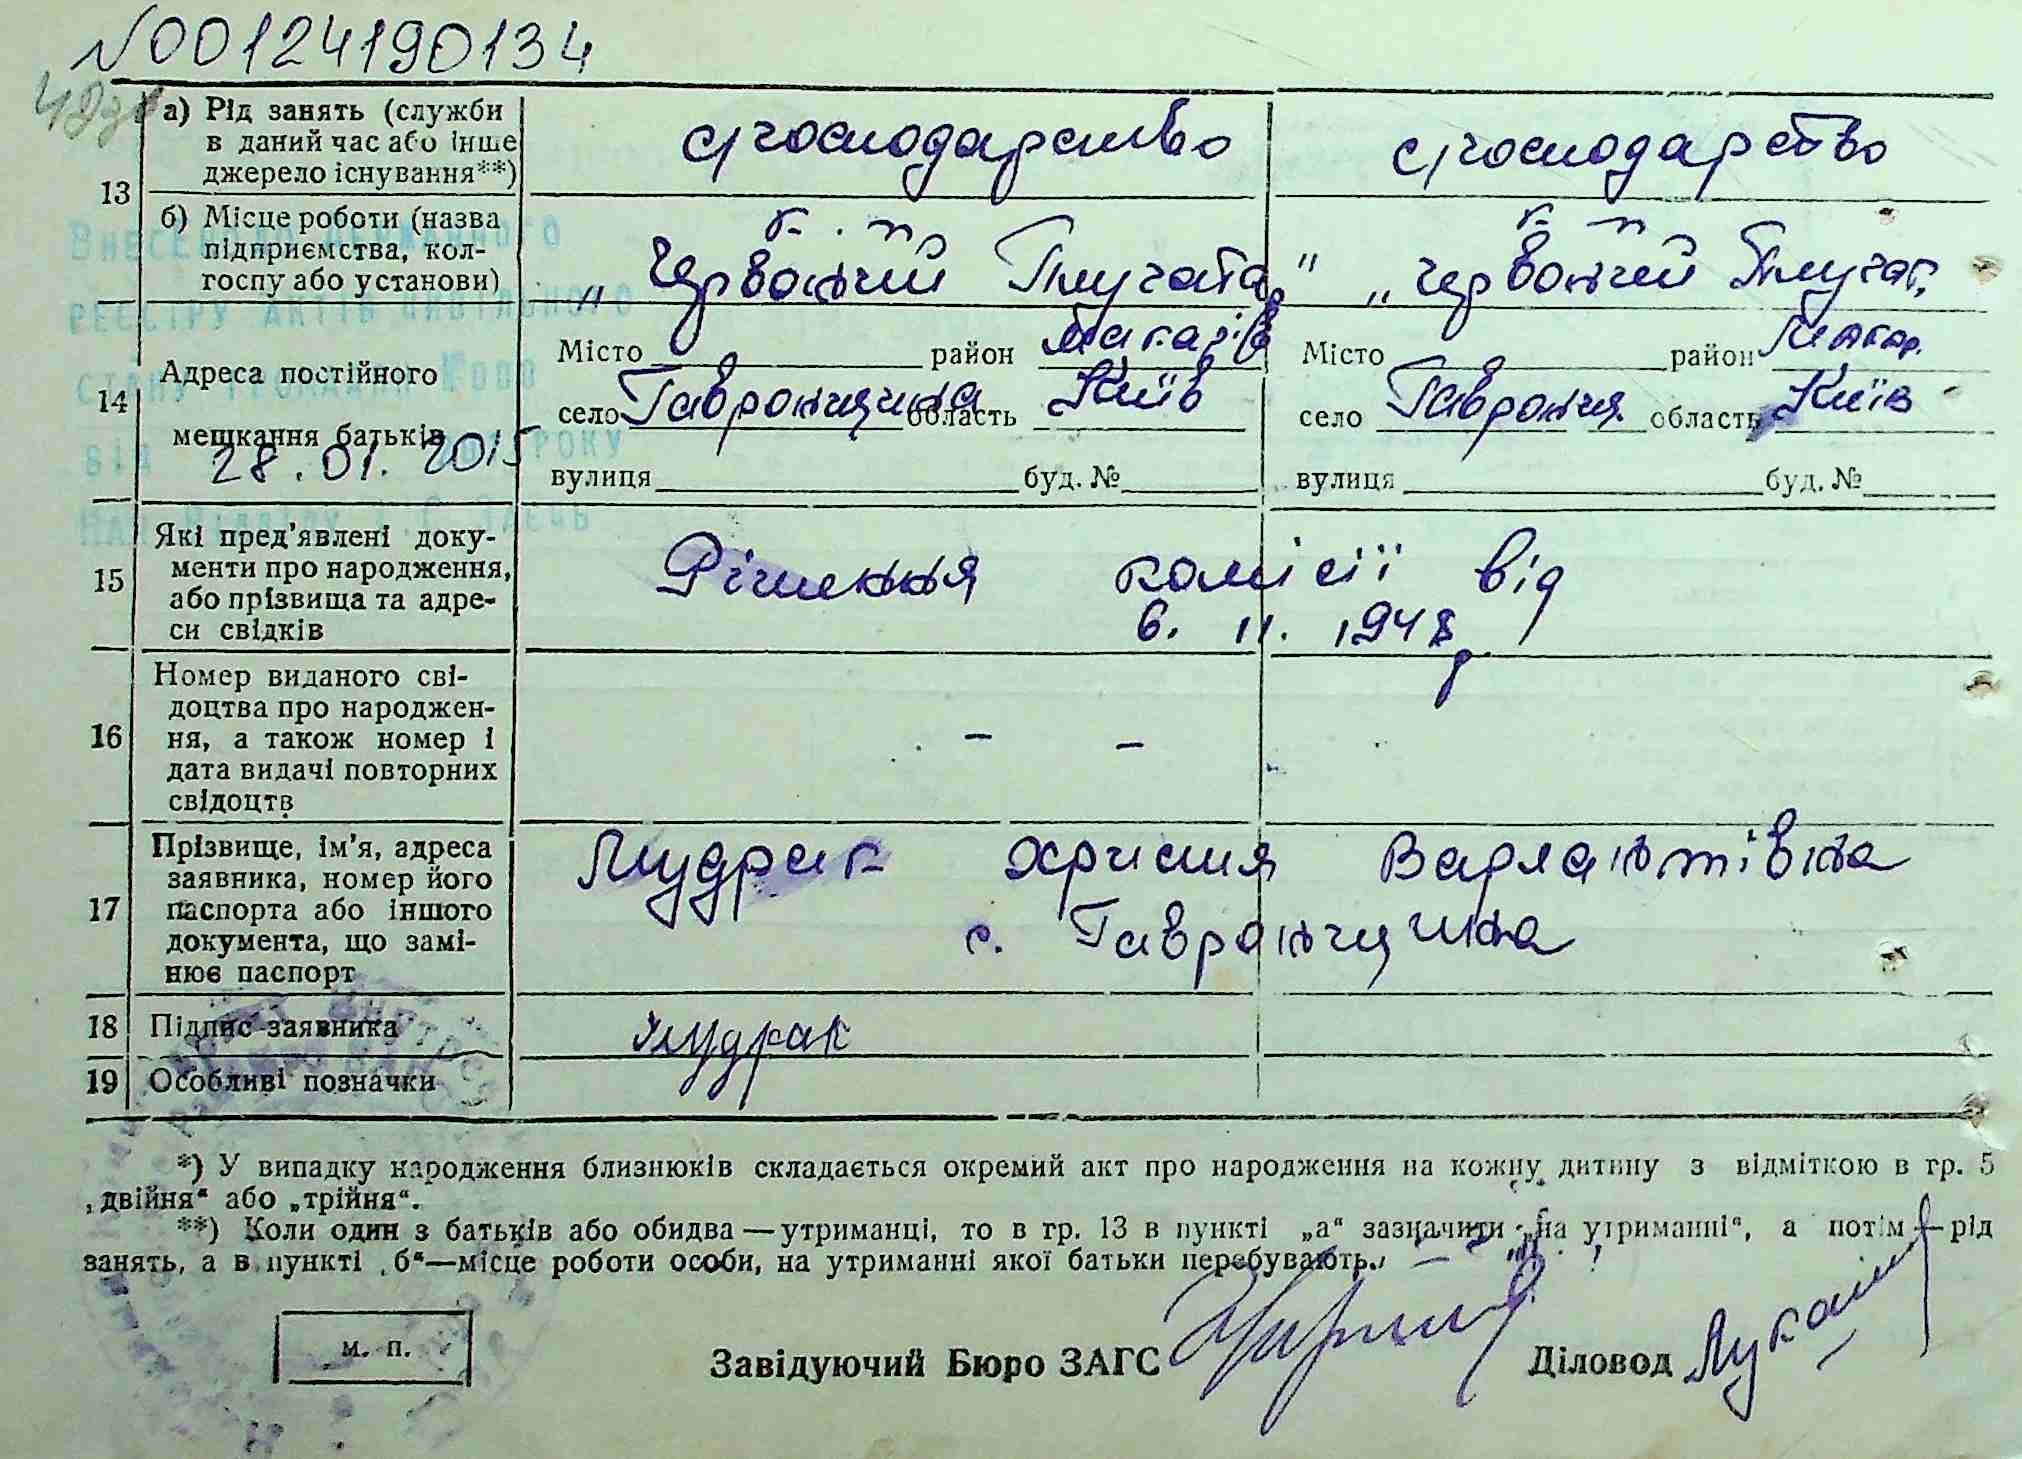 №00124190134
а) Рід занять (служби с/господарство с/господарство
в даний час або інше
джерело існування**)
13
б) Місце роботи (назва к-п к-п
підприємства, кол- „Червоний Плугатар" „Червоний Плугат.
госпу або установи)
Місто район Макарів Місто район Макар.
14 Адреса постійного
село Гавронщина область Київ село Гавронщ. область Київ
мешкання батьків
28.01.2015 РОКУ
вулиця буд. № вулиця буд. №
Які пред'явлені доку-
15 менти про народження, Рішення комісії від
або прізвища та адре- 6. 11. 1948 р
си свідків
Номер виданого сві-
доцтва про народжен-
16 ня, а також номер і - -
дата видачі повторних
свідоцтв
Прізвище, ім'я, адреса Мудрак Христя Варлантівна
заявника, номер його
17 паспорта або іншого с. Гавронщина
документа, що замі-
нює паспорт
18 Підпис заявника Мудрак
19 Особливі позначки
*) У випадку народження близнюків складається окремий акт про народження на кожну дитину з відміткою в гр. 5
„двійня“ або „трійня“.
**) Коли один з батьків або обидва—утриманці, то в гр. 13 в пункті „а“ зазначити „на утриманні“, а потім—рід
занять, а в пункті „б“—місце роботи особи, на утриманні якої батьки перебувають.
м. п.
Завідуючий Бюро ЗАГС Діловод